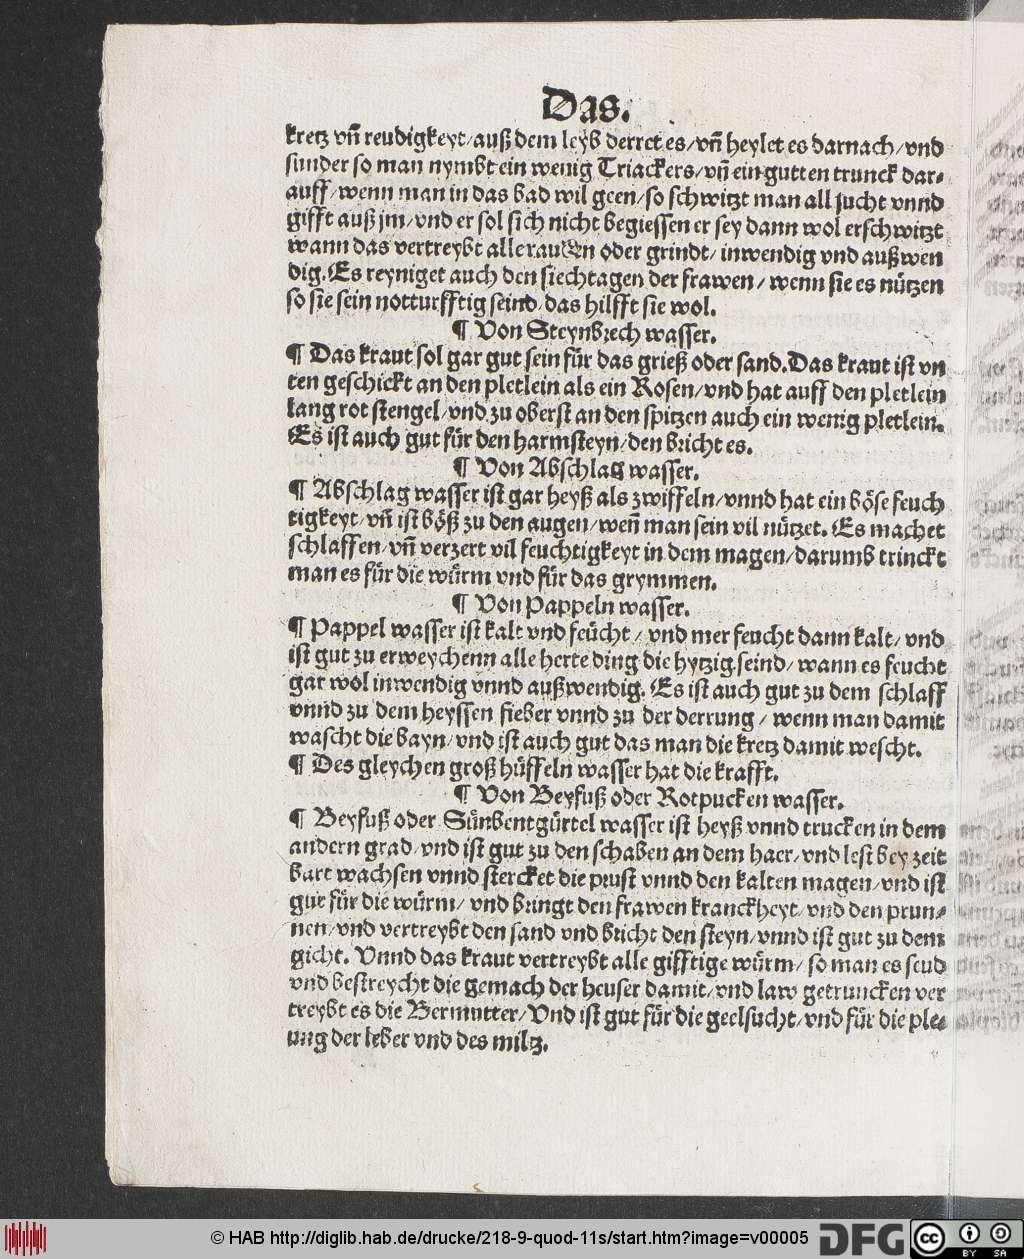 Das.
kretz vn̄ reudigkeyt/auß dem leyb derret es/vn̄ heylet es darnach/vnd
sunder so man nymbt ein wenig Triackers/vn̄ ein gutten trunck dar⸗
auff/wenn man in das bad wil geen/so schwitzt man all sucht vnnd
gifft auß jm/vnd er sol sich nicht begiessen er sey dann wol erschwitzt
wann das vertreybt alle rauden oder grindt/inwendig vnd außwen
dig. Es reyniget auch den siechtagen der frawen/wenn sie es nützen
so sie sein notturfftig seind/das hilfft sie wol.
¶ Von Steynbrech wasser.
¶ Das kraut sol gar gut sein für das grieß oder sand. Das kraut ist vn
ten geschickt an den pletlein als ein Rosen/vnd hat auff den pletlein
lang rot stengel/vnd zu oberst an den spitzen auch ein wenig pletlein.
Es ist auch gut für den harmsteyn/den bricht es.
¶ Von Abschlag wasser.
¶ Abschlag wasser ist gar heyß als zwiffeln/vnnd hat ein böse feuch
tigkeyt/vn̄ ist böß zu den augen/wen̄ man sein vil nützet. Es machet
schlaffen/vn̄ verzert vil feuchtigkeyt in dem magen/darumb trinckt
man es für die würm vnd für das grymmen.
¶ Von Pappeln wasser.
¶ Pappel wasser ist kalt vnd feücht/vnd mer feucht dann kalt/vnd
ist gut zu erweychenn alle herte ding die hytzig seind/wann es feucht
gar wol inwendig vnnd außwendig. Es ist auch gut zu dem schlaff
vnnd zu dem heyssen fieber vnnd zu der derrung/wenn man damit
wascht die bayn/vnd ist auch gut das man die kretz damit wescht.
¶ Des gleychen groß hüffeln wasser hat die krafft.
¶ Von Beyfuß oder Rotpucken wasser.
¶ Beyfuß oder Sünbentgürtel wasser ist heyß vnnd trucken in dem
andern grad/vnd ist gut zu den schaben an dem haer/vnd lest bey zeit
bart wachsen vnnd stercket die prust vnnd den kalten magen/vnd ist
gut für die würm/vnd bringt den frawen kranckheyt/vnd den prun⸗
nen/vnd vertreybt den sand vnd bricht den steyn/vnnd ist gut zu dem
gicht. Vnnd das kraut vertreybt alle gifftige würm/so man es seud
vnd bestreycht die gemach der heuser damit/vnd law getruncken ver
treybt es die Bermutter/Vnd ist gut für die geelsucht/vnd für die ple⸗
ung der leber vnd des miltz.
© HAB http://diglib.hab.de/drucke/218-9-quod-11s/start.htm?image=v00005
DFG
cc BY SA